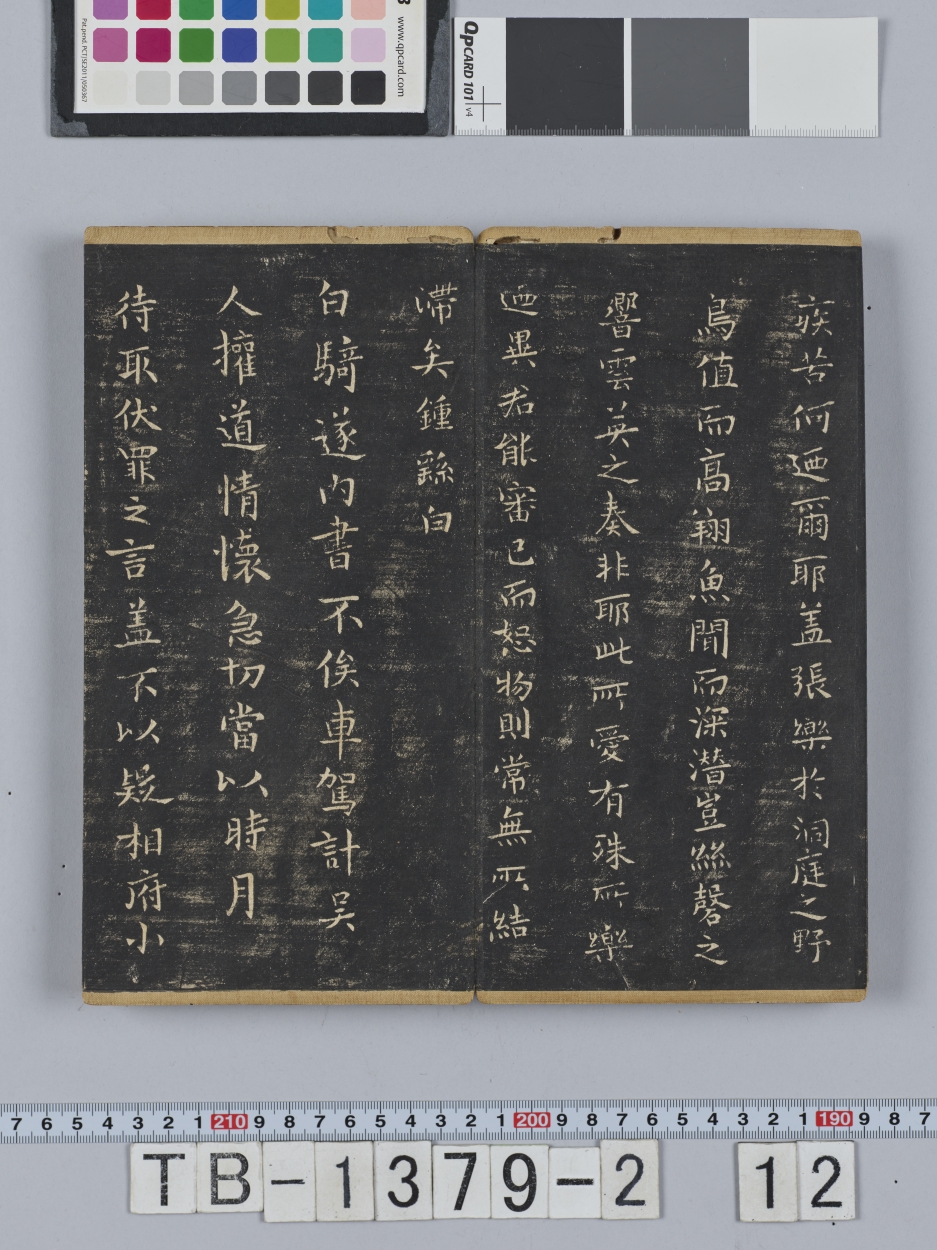 www.qpcard.com
Pat.pend. PCT/SE2011/050367
QPCARD 101 v4
疾苦何迺爾耶盖張樂於洞庭之野
鳥值而高翔魚聞而深潛豈絲磬之
響雲英之奏非耶此所愛有殊所樂
迺異君能審己而恕物則常無所結
滯矣鍾繇白
白騎遂內書不俟車駕計吳
人權道情懷急切當以時月
待取伏罪之言盖不以疑相府小
7 6 5 4 3 2 1 210 9 8 7 6 5 4 3 2 1 200 9 8 7 6 5 4 3 2 1 190 9 8 7
TB-1379-2 12